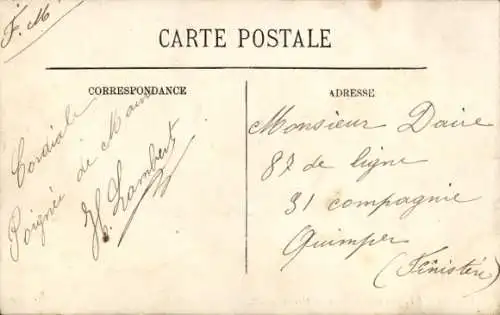 F. M
CARTE POSTALE
CORRESPONDANCE
Cordiale
Poignée de Main
H. Lambert
ADRESSE
Monsieur Daire
87 de ligne
31 compagnie
Quimper
(Finistère)